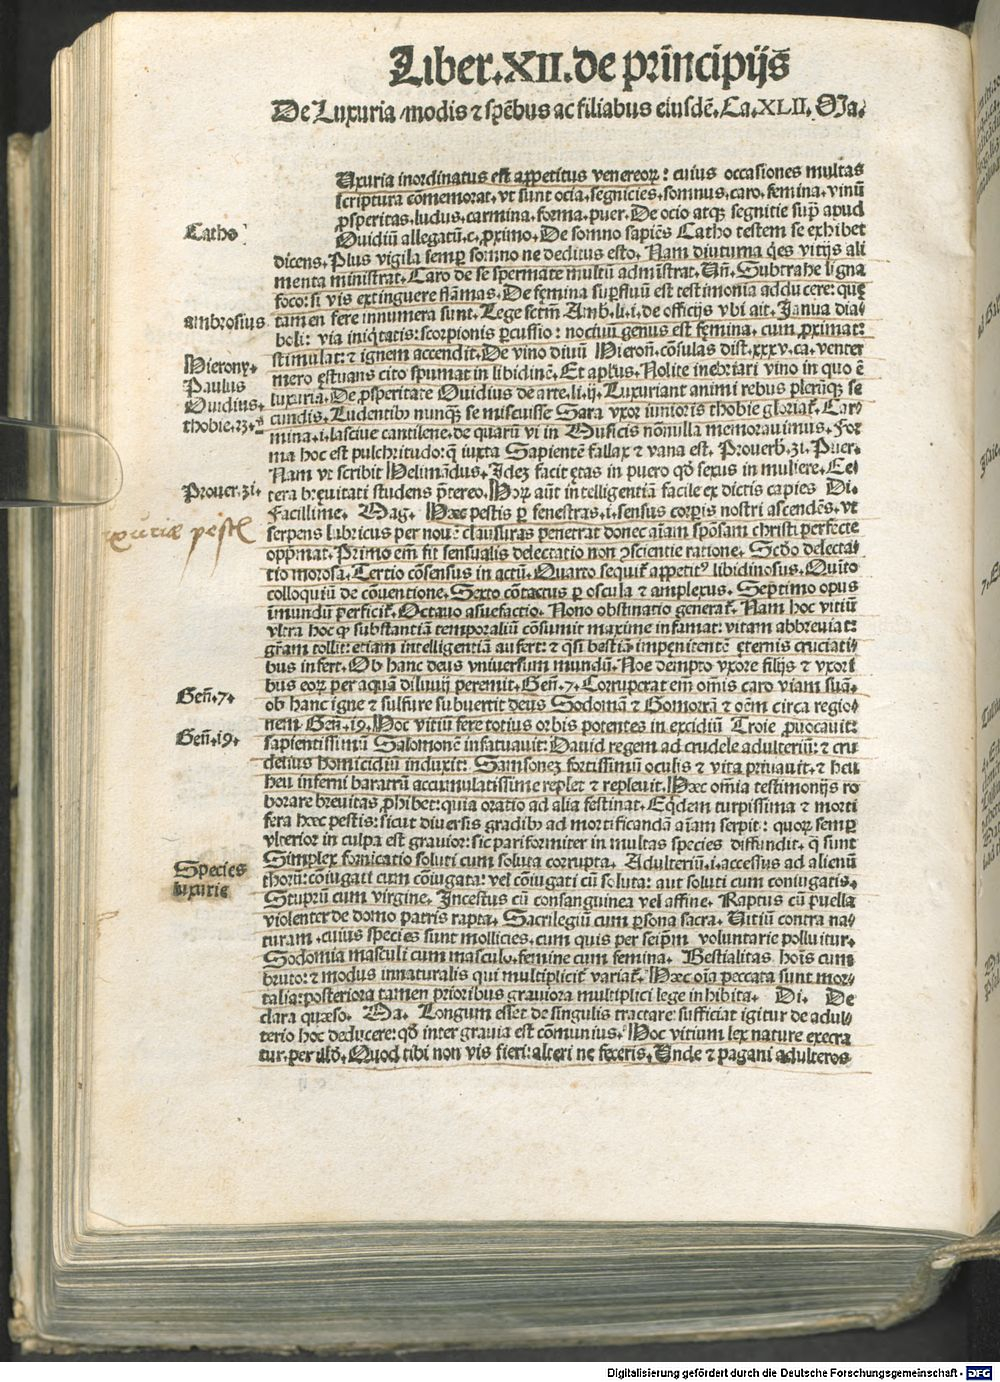 Liber.XII.de principijs
De Luxuria /modis ⁊ spēbus ac filiabus eiusdē. Ca.XLII. Ma.
Uxuria inordinatus est appetitus venereoꝝ: cuius occasiones multas
scriptura cōmemorat. vt sunt ocia. segnicies. somnus. caro. femina. vinū
ꝓsperitas. ludus. carmina. forma. puer. De ocio atqꝫ segnitie supͣ apud
Catho
Ouidiū allegatū.c. ꝓximo. De somno sapiēs Catho testem se exhibet
dicens. Plus vigila semꝑ somno ne deditus esto. Nam diuturna q̇es vitijs ali
menta ministrat. Caro de se spermate multū admīstrat. Uñ. Subtrahe ligna
foco: si vis extinguere flāmas. De fęmina suꝑfluū est testimonia adducere: quę
ambrosius
tamen fere innumera sunt. Lege sctm̄ Amb. li. i. de officijs vbi ait. Janua dia⸗
boli: via iniq̇tatis: scorpionis ꝑcussio: nociuū genus est fęmina. cum ꝓximat:
stimulat: ⁊ ignem accendit. De vino diuū Hieroñ. cōsulas dist. xxxv. ca. venter
Hierony.
mero ęstuans cito spumat in libidinē. Et aplus. Nolite inebriari vino in quo ē
Paulus
luxuria. De ꝓsperitate Ouidius de arte. li. ij. Luxuriant animi rebus plerūqꝫ se
Ouidius.
cundis. Ludentibꝰ nunqꝫ se miscuisse Sara vxor iunioris thobie gloriat᷑. Car⸗
thobie. 3.
mina. i. lasciue cantilene. de quarū vi in Musicis nōnulla memorauimus. For
ma hoc est pulchritudo: q̄ iuxta Sapientē fallax ⁊ vana est. Prouerb. 31. Puer.
Nam vt scribit Helimādus. Idez facit ętas in puero qd̓ sexus in muliere. Cę⸗
Prouer. 31.
tera breuitati studens p̄tereo. Hoꝝ aūt intelligentiā facile ex dictis capies Di.
Facillime. Mag. Hæc pestis ꝑ fenestras. i. sensus corꝑis nostri ascendēs. vt
luxuriæ pestꝭ
serpens lubricus per nouē clausuras penetrat donec aīam spōsam christi perfecte
opp̄mat. Primo em̄ fit sensualis delectatio non ꝯscientie ratione. Scd̓o delecta⸗
tio morosa. Tertio cōsensus in actū. Quarto sequit᷑ appetitꝰ libidinosus. Quīto
colloquiū de cōuentione. Sexto cōtactus ꝑ oscula ⁊ amplexus. Septimo opus
īmundū perficit᷑. Octauo asuefactio. Nono obstinatio generat᷑. Nam hoc vitiū
vltra hoc qꝙ substantiā temporaliū cōsumit maxime infamat: vitam abbreuiat:
gr̄am tollit: etiam intelligentiā aufert: ⁊ q̄si bestiā impęnitentē ęternis cruciati⸗
bus infert. Ob hanc deus vniuersum mundū. Noe dempto vxore filijs ⁊ vxori
bus eoꝝ per aquā diluuij peremit. Geñ. 7. Corruperat em̄ om̄is caro viam suā.
Geñ. 7.
ob hanc igne ⁊ sulfure subuertit deus Sodomā ⁊ Gomorrā ⁊ oēm circa regio⸗
nem Geñ. 19. Hoc vitiū fere totius orbis potentes in excidiū Troie ꝓuocauit:
Geñ. 19.
sapientissimū Salomonē infatuauit: Dauid regem ad crudele adulteriū: ⁊ cru
delius homicidiū induxit: Samsonez fortissimū oculis ⁊ vita priuauit. ⁊ heu
heu inferni baratrū accumulatissime replet ⁊ repleuit. Hæc omīa testimonijs ro
borare breuitas ꝓhibet: quia oratio ad alia festinat. Eq̇dem turpissima ⁊ morti
fera hæc pestis: sicut diuersis gradibꝰ ad mortificandā aīam serpit: quoꝝ semꝑ
vlterior in culpa est grauior: sic pariformiter in multas species diffundit. q̄ sunt
Species
luxurie
Simplex fornicatio soluti cum soluta corrupta. Adulteriū. i. accessus ad alienū
thorū: cōiugati cum cōiugata: vel cōiugati cū soluta: aut soluti cum coniugatis.
Stuprū cum virgine. Incestus cū consanguinea vel affine. Raptus cū puella
violenter de domo patris rapta. Sacrilegiū cum ꝑsona sacra. Uitiū contra na⸗
turam. cuius species sunt mollicies. cum quis per seip̄m voluntarie polluitur.
Sodomia masculi cum masculo. femine cum femina. Bestialitas hoīs cum
bruto: ⁊ modus innaturalis qui multiplicit᷑ variat᷑. Hæc oīa peccata sunt mor⸗
talia: posteriora tamen prioribus grauiora multiplici lege inhibita. Di. De
clara quæso. Ma. Longum esset de singulis tractare: sufficiat igitur de adul⸗
terio hoc deducere: qd̓ inter grauia est cōmunius. Hoc vitium lex nature execra
tur. per illd̓. Quod tibi non vis fieri: alteri ne feceris. Unde ⁊ pagani adulteros
Digitalisierung gefördert durch die Deutsche Forschungsgemeinschaft - DFG